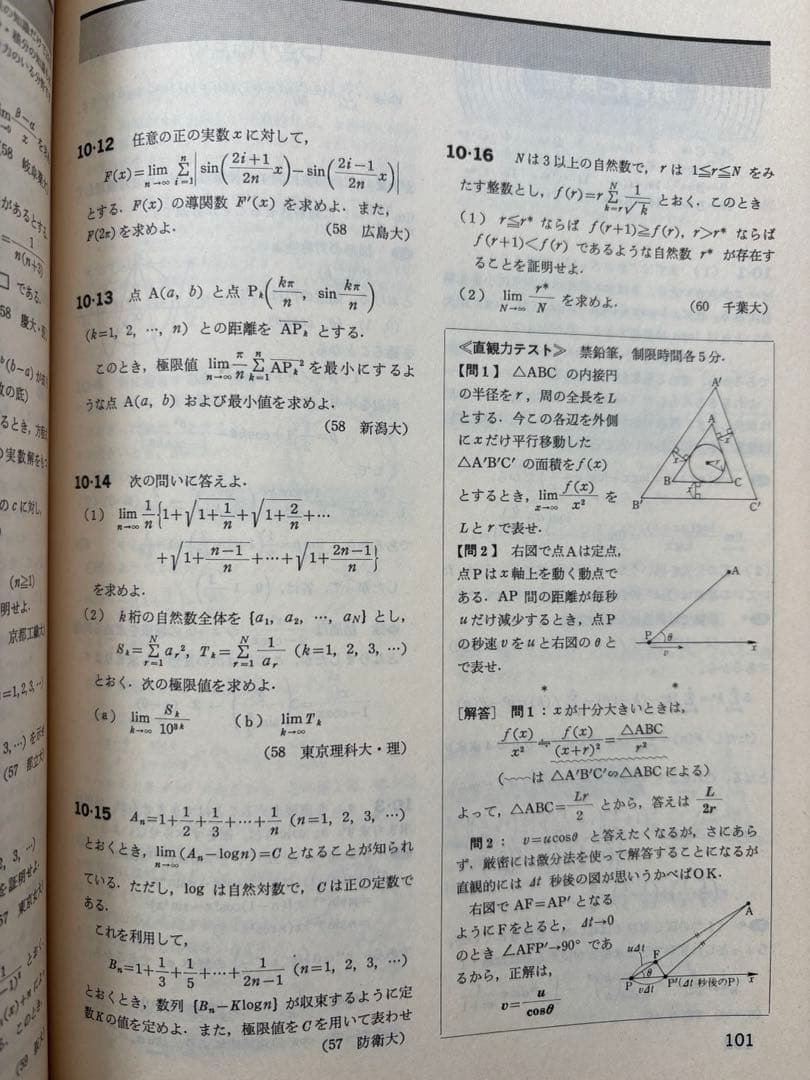 10・12 任意の正の実数 x に対して，
F(x)=lim_{n→∞} Σ_{i=1}^{n} |sin((2i+1)/2n x)−sin((2i−1)/2n x)|
とする．F(x) の導関数 F′(x) を求めよ．また，
F(2π) を求めよ． (58 広島大)
10・13 点 A(a, b) と点 P_k(kπ/n, sin kπ/n)
(k=1, 2, …, n) との距離を AP_k とする．
このとき，極限値 lim_{n→∞} π/n Σ_{k=1}^{n} AP_k² を最小にするよ
うな点 A(a, b) および最小値を求めよ．
(58 新潟大)
10・14 次の問いに答えよ．
(1) lim_{n→∞} 1/n {1+√(1+1/n)+√(1+2/n)+…
+√(1+(n−1)/n)+…+√(1+(2n−1)/n)}
を求めよ．
(2) k桁の自然数全体を {a₁, a₂, …, a_N} とし，
S_k=Σ_{r=1}^{N} a_r², T_k=Σ_{r=1}^{N} 1/a_r (k=1, 2, 3, …)
とおく．次の極限値を求めよ．
(a) lim_{k→∞} S_k/10^{3k} (b) lim_{k→∞} T_k
(58 東京理科大・理)
10・15 A_n=1+1/2+1/3+…+1/n (n=1, 2, 3, …)
とおくとき，lim_{n→∞}(A_n−log n)=C となることが知られ
ている．ただし，log は自然対数で，C は正の定数で
ある．
これを利用して，
B_n=1+1/3+1/5+…+1/(2n−1) (n=1, 2, 3, …)
とおくとき，数列 {B_n−K log n} が収束するように定
数Kの値を定めよ．また，極限値を C を用いて表わせ
(57 防衛大)
10・16 N は 3 以上の自然数で，r は 1≦r≦N をみ
たす整数とし，f(r)=r Σ_{k=r}^{N} 1/√k とおく．このとき
(1) r≦r* ならば f(r+1)≧f(r)，r>r* ならば
f(r+1)<f(r) であるような自然数 r* が存在す
ることを証明せよ．
(2) lim_{N→∞} r*/N を求めよ． (60 千葉大)
≪直観力テスト≫ 禁鉛筆，制限時間各5分．
【問1】 △ABC の内接円
の半径を r，周の全長を L
とする．今この各辺を外側
に x だけ平行移動した
△A′B′C′ の面積を f(x)
とするとき，lim_{x→∞} f(x)/x² を
L と r で表せ．
A′
A
x
x
r
B
C
x
B′
C′
【問2】 右図で点 A は定点，
点 P は x 軸上を動く動点で
ある．AP 間の距離が毎秒
u だけ減少するとき，点 P
の秒速 v を u と右図の θ と
で表せ．
A
P
θ
v
x
＊ ＊
[解答] 問1：x が十分大きいときは，
f(x)/x² ≒ f(x)/(x+r)² = △ABC/r²
(〜〜は △A′B′C′∽△ABC による)
よって，△ABC=Lr/2 とから，答えは L/2r
問2： v=ucosθ と答えたくなるが，さにあら
ず．厳密には微分法を使って解答することになるが
直観的には Δt 秒後の図が思いうかべばOK．
右図で AF=AP′ となる
ようにFをとると，Δt→0
のとき ∠AFP′→90° であ
るから，正解は，
v=u/cosθ
A
uΔt
F
θ
P
vΔt
P′(Δt 秒後のP)
x
101